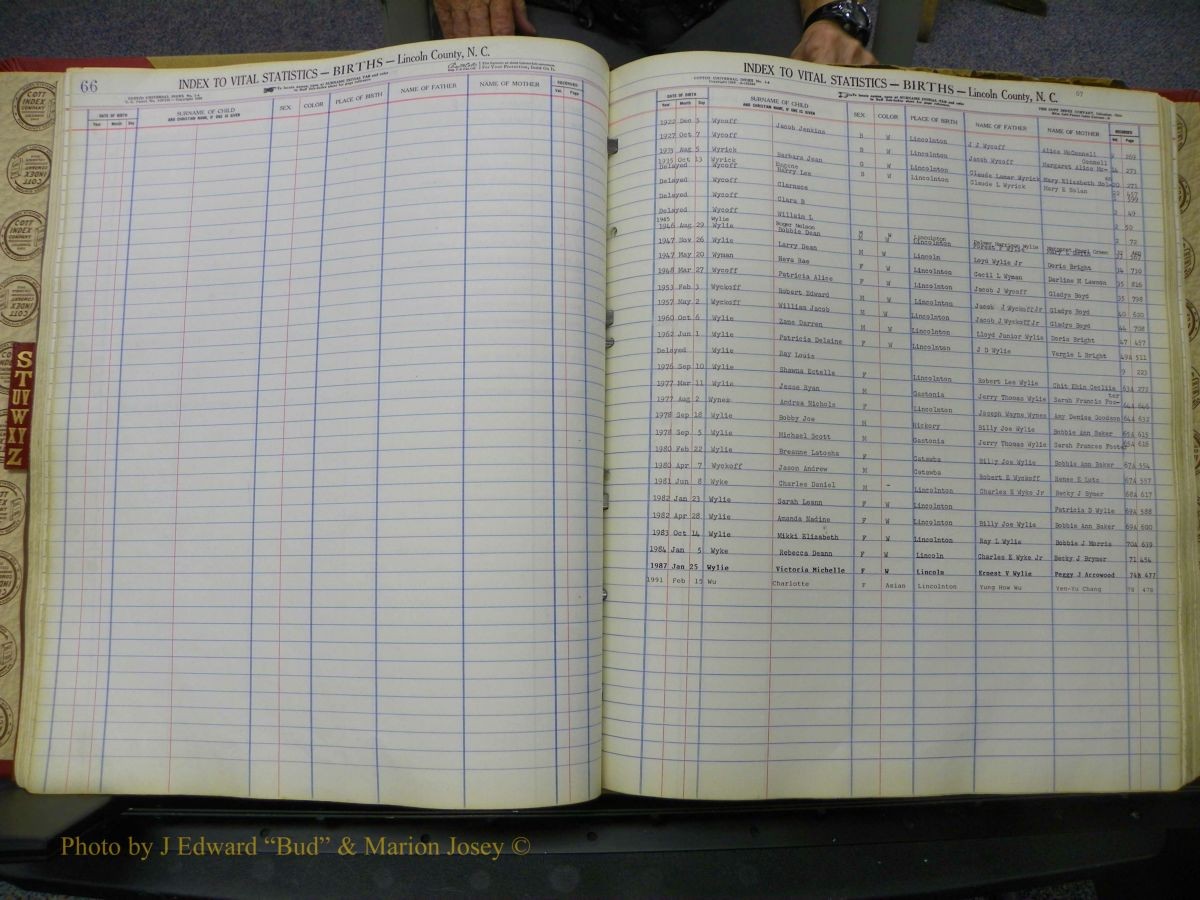 66
INDEX TO VITAL STATISTICS — BIRTHS — Lincoln County, N. C.
COTT INDEX COMPANY
DATE OF BIRTH
Year Month Day
SURNAME OF CHILD
AND CHRISTIAN NAME, IF ONE IS GIVEN
SEX
COLOR
PLACE OF BIRTH
NAME OF FATHER
NAME OF MOTHER
RECORDED
Vol. Page
INDEX TO VITAL STATISTICS — BIRTHS — Lincoln County, N. C.
67
DATE OF BIRTH
Year Month Day
SURNAME OF CHILD
AND CHRISTIAN NAME, IF ONE IS GIVEN
SEX
COLOR
PLACE OF BIRTH
NAME OF FATHER
NAME OF MOTHER
RECORDED
Vol. Page
1922 Dec Wycoff Jacob Jenkins B W Lincolnton J J Wycoff Alice McConnell 269
1927 Oct 7 Wycoff B W Lincolnton Jacob Wycoff Margaret Alice Mc- Connell 14 273
1933 Aug 5 Wyrick Barbara Jean G W Lincolnton Claude Lamar Wyrick Mary Elizabeth 271
1935 Oct 13 Wyrick Eugene B W Lincolnton Claude L Wyrick Mary E Nolan 457
Delayed Wycoff Harry Lee 399
Delayed Wycoff Clarence 2 49
Delayed Wycoff Clara B 2 50
Delayed Wycoff Willain L 2 72
1945 Wylie Roger Nelson M W Lincolnton Palmer Harrison Wylie Margaret Pearl Green
1946 Aug 29 Wylie Bobbie Dean M W Lincolnton Forest F Wylie
1947 Nov 26 Wylie Larry Dean M W Lincoln Loyd Wylie Jr Doris Bright 34 730
1947 May 20 Wyman Neva Rae F W Lincolnton Cecil L Wyman Darline M Lawson 35 816
1948 Mar 27 Wycoff Patricia Alice F W Lincolnton Jacob J Wycoff Gladys Boyd 35 798
1953 Feb 3 Wyckoff Robert Edward M W Lincolnton Jacob J Wyckoff Jr Gladys Boyd 40 600
1957 May 2 Wyckoff William Jacob M W Lincolnton Jacob J Wyckoff Jr Gladys Boyd 44 708
1960 Oct 6 Wylie Zane Darren M W Lincolnton Lloyd Junior Wylie Doris Bright 47 457
1962 Jun 1 Wylie Patricia Delaine F W Lincolnton J D Wylie Vergie L Bright 49A 511
Delayed Wylie Ray Louis 9 223
1976 Sep 10 Wylie Shawna Estelle F Lincolnton Robert Lee Wylie Chit Ehin Cecliia 63A 272
1977 Mar 11 Wylie Jesse Ryan M Gastonia Jerry Thomas Wylie Sarah Francis Fos- ter 64A 646
1977 Aug 2 Wynek Andrea Nichole F Lincolnton Joseph Wayne Wynek Amy Denise Goodson 64A 632
1978 Sep 18 Wylie Bobby Joe M Hickory Billy Joe Wylie Bobbie Ann Baker 65A 615
1978 Sep 5 Wylie Michael Scott M Gastonia Jerry Thomas Wylie Sarah Frances Foster 65A 616
1980 Feb 22 Wylie Breanne Latosha F Catawba Billy Joe Wylie Bobbie Ann Baker 67A 554
1980 Apr 7 Wyckoff Jason Andrew M Catawba Robert E Wyckoff Renee E Lutz 67A 557
1981 Jun 8 Wyke Charles Daniel M - Lincolnton Charles E Wyke Jr Becky J Bymer 68A 617
1982 Jan 23 Wylie Sarah Leann F W Lincolnton Patricia D Wylie 69A 588
1982 Apr 28 Wylie Amanda Nadine F W Lincolnton Billy Joe Wylie Bobbie Ann Baker 69A 600
1983 Oct 14 Wylie Mikki Elizabeth F W Lincolnton Ray L Wylie Bobbie J Morris 70A 639
1984 Jan 5 Wyke Rebecca Deann F W Lincoln Charles E Wyke Jr Becky J Brymer 71 454
1987 Jan 25 Wylie Victoria Michelle F W Lincoln Ernest V Wylie Peggy J Arrowood 74B 477
1991 Feb 15 Wu Charlotte F Asian Lincolnton Yung How Wu Yen-Yu Chang 78 478
S
T
U V
W
X Y
Z
Photo by J Edward “Bud” & Marion Josey ©